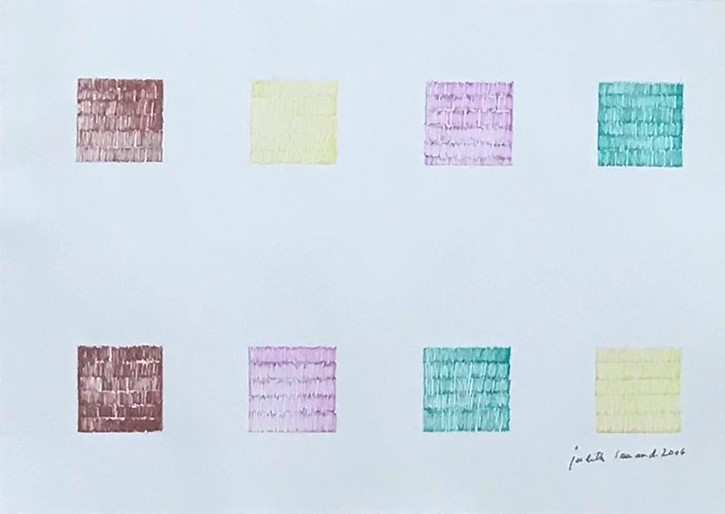 judith lauand. 2006